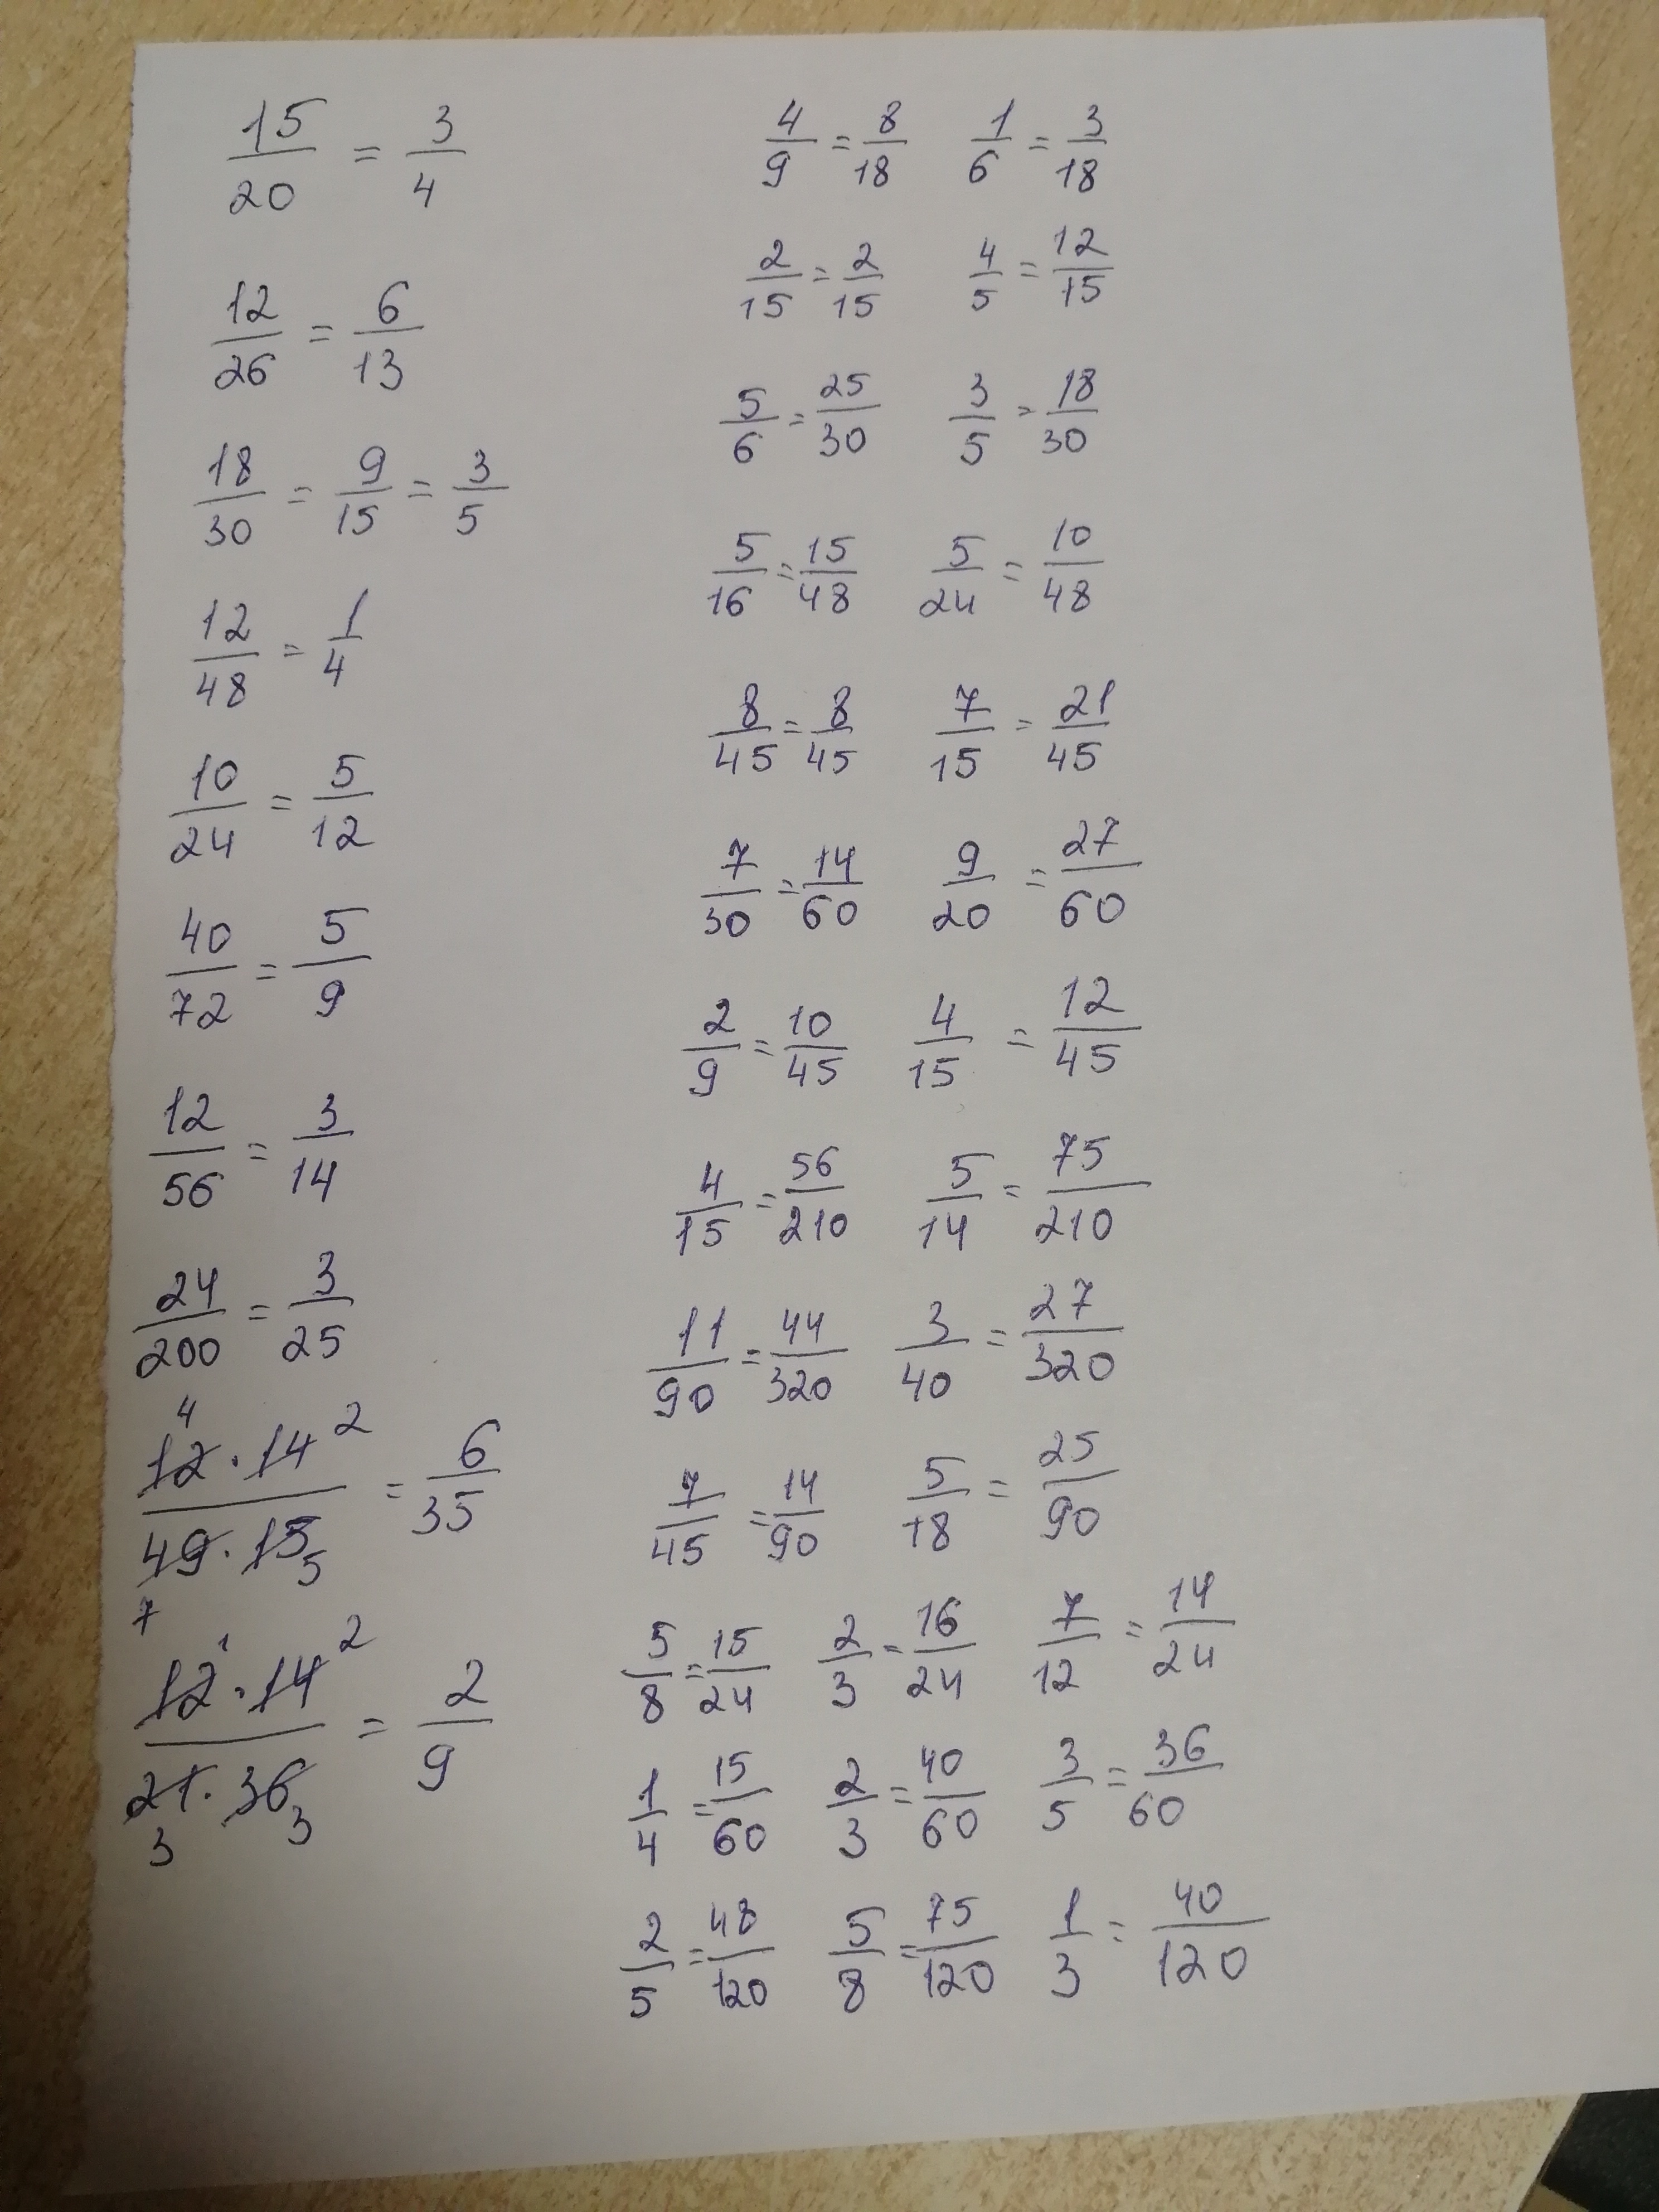 15/20 = 3/4
12/26 = 6/13
18/30 = 9/15 = 3/5
12/48 = 1/4
10/24 = 5/12
40/72 = 5/9
12/56 = 3/14
24/200 = 3/25
4
12 · 14 2 / 49 · 15 5 = 6/35
7
1 2
12 · 14 / 21 · 36 = 2/9
3 3
4/9 = 8/18 1/6 = 3/18
2/15 = 2/15 4/5 = 12/15
5/6 = 25/30 3/5 = 18/30
5/16 = 15/48 5/24 = 10/48
8/45 = 8/45 7/15 = 21/45
7/30 = 14/60 9/20 = 27/60
2/9 = 10/45 4/15 = 12/45
4/15 = 56/210 5/14 = 75/210
11/90 = 44/320 3/40 = 27/320
7/45 = 14/90 5/18 = 25/90
5/8 = 15/24 2/3 = 16/24 7/12 = 14/24
1/4 = 15/60 2/3 = 40/60 3/5 = 36/60
2/5 = 48/120 5/8 = 75/120 1/3 = 40/120